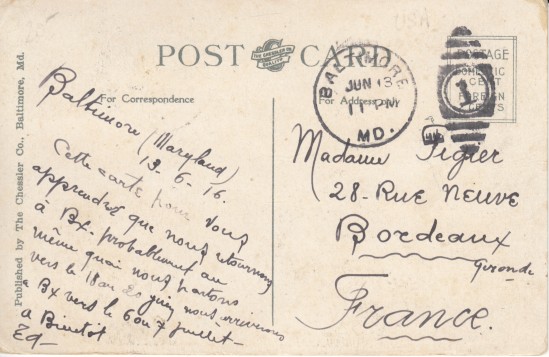 USA
POST CARD
THE CHESSLER CO.
For Correspondence
For Address only
Published by The Chessler Co., Baltimore, Md.
BALTIMORE
JUN 13
11 PM
MD.
1
POSTAGE
DOMESTIC
CENT
FOREIGN
CENTS
Baltimore (Maryland)
13-6-16.
Cette carte pour vous
apprendre que nous retournons
à Bx. probablement au
même quai nous partons
vers le 18 ou 20 juin nous arriverons
à Bx vers le 6 ou 7 juillet-
à Bientôt
Ed-
Madame Tigier
28-Rue Neuve
Bordeaux
Gironde
France.